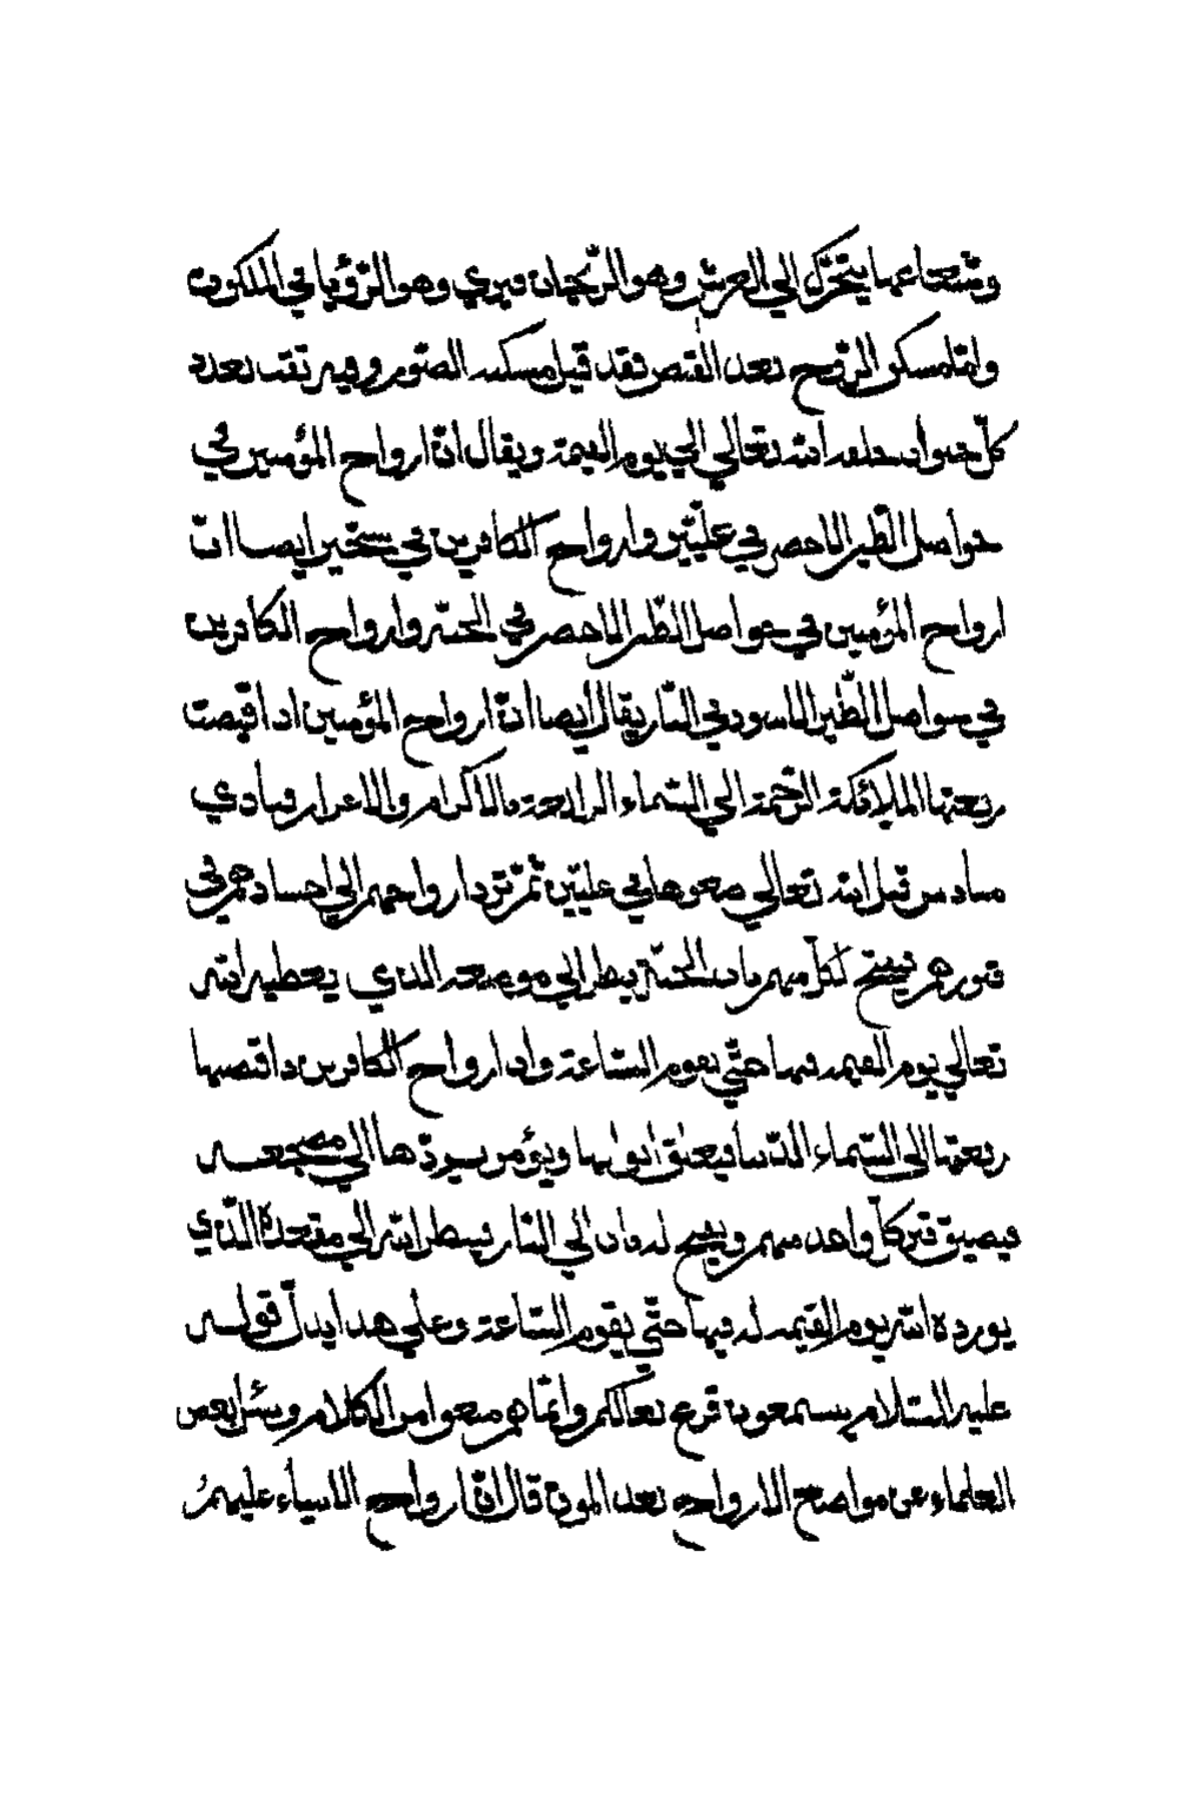 وشعاعها يتحرّك الي العرش وهو الرّيحان فيري وهو الرّؤيا في الملكوت
وامّا مسكن الرّوح بعد القبض فقد قيل مسكنه الصّور وفيه ثقب بعدد
كلّ حيوان خلقه الله تعالي الي يوم القيمة ويقال انّ ارواح المؤمنين في
حواصل الطّير الاخضر في علّيّين وارواح الكافرين في سجّين ايضا انّ
ارواح المؤمنين في حواصل الطّير الاخضر في الجنّة وارواح الكافرين
في حواصل الطّير الاسود في النّار يقال ايضا انّ ارواح المؤمنين اذا قبضت
رفعتها الملائكة الرّحمة الي السّماء الرابعة بالاكرام والاعزاز فينادي
مناد من قبل الله تعالي ضعوها في علّيّين ثمّ تردّ ارواحهم الي اجسادهم في
قبورهم يفتح لكلّ منهم باب الجنّة ينظر الي موضعه الذي يعطيه الله
تعالي يوم القيمة فيها حتّي يقوم السّاعة واذا ارواح الكافرين اذا قبضها
رفعتها الي السّماء الدّنيا فيغلق ابوابها ويؤمر بردّها الي مضجعه
فيضيق قبر كلّ واحد منهم ويفتح له باب الي النّار فينظر الله الي مقعده الّذي
يورده الله يوم القيمة له فيها حتّي يقوم السّاعة وعلي هذا يدلّ قوله
عليه السّلام يسمعون قرع نعالكم وانّما هم منعوا من الكلام وسئل بعض
العلماء عن مواضع الارواح بعد الموت قال انّ ارواح الانبياء عليهم